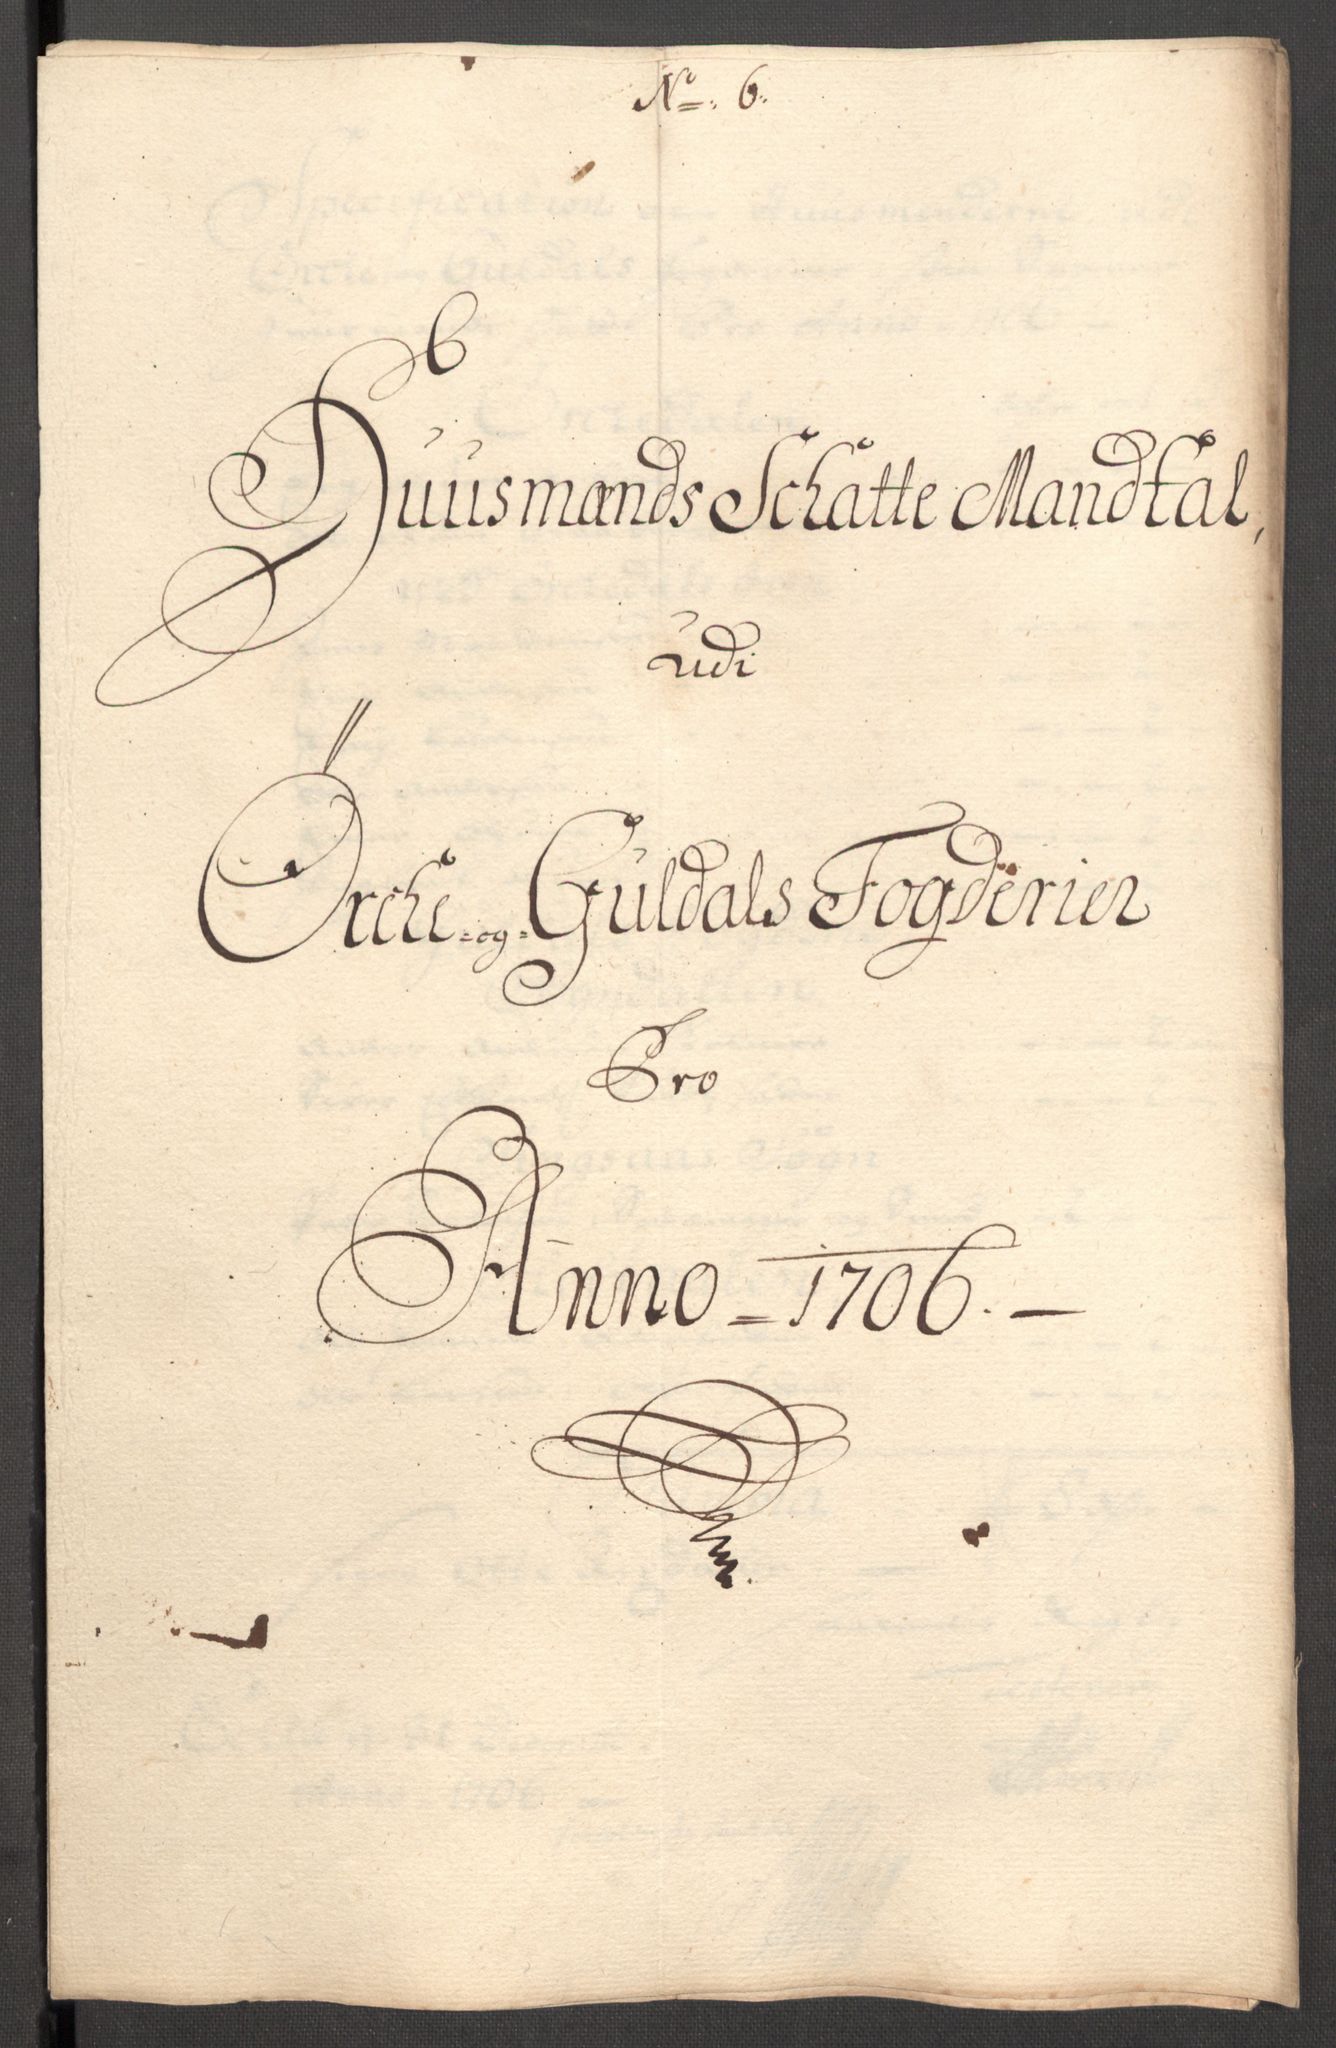 No. 6.
Huusmænds Schatte Mandtal,
udi
Örche og Guldals Fogderier
Pro
Anno 1706.